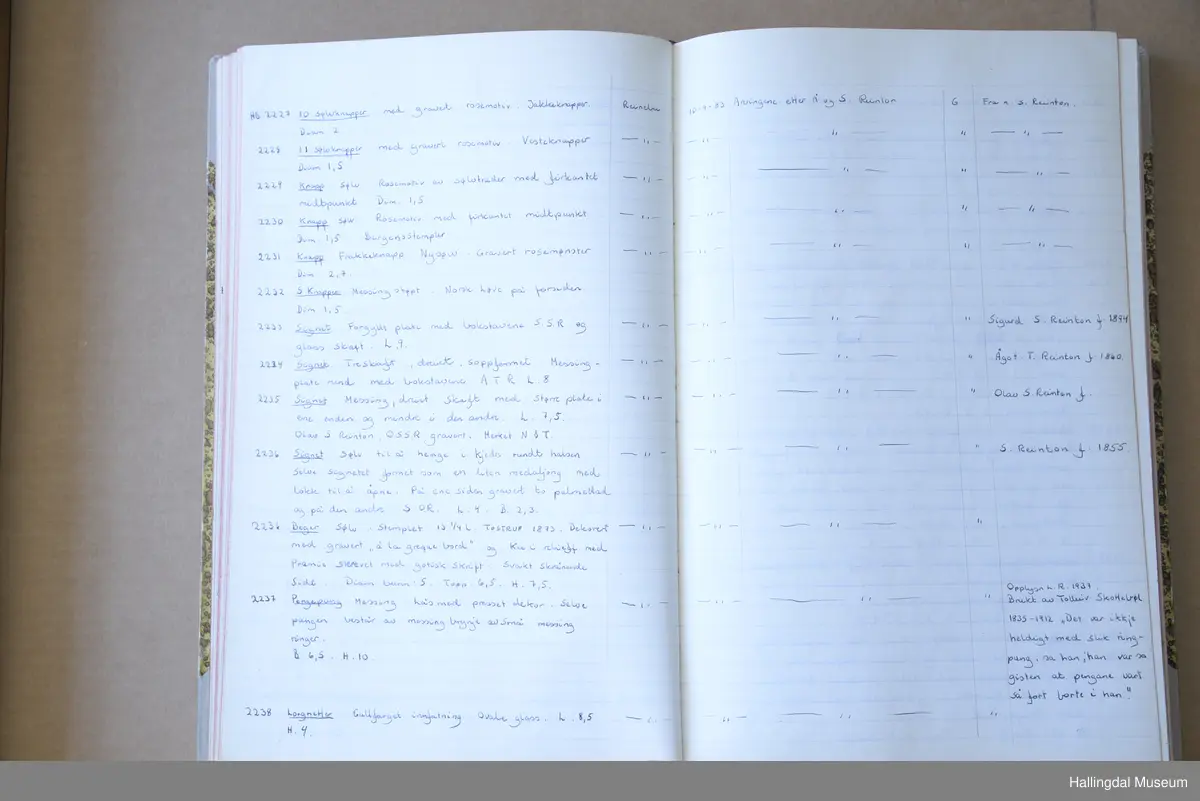 HB 2227 10 sølvknapper med gravert rosemotiv. Jakkeknapper. Reinton 10-9-83 Arvingane etter Å og S. Reinton G Fra n. S. Reinton.
Diam 2
2228 11 sølvknipper med gravert rosemotiv Vesteknapper — " — — " — — " — " — " —
Diam 1,5
2229 Knapp Sølv Rosemotiv av sølvtråder med firkantet — " — — " — — " — " — " —
midtpunkt Diam. 1,5
2230 Knapp Sølv Rosemotiv med firkantet midtpunkt — " — — " — — " — " — " —
Diam 1,5 Bergensstempler
2231 Knapp Frakkeknapp Nysølv. Gravert rosemønster — " — — " — — " — " — " —
Dim 2,7.
2232 5 Knapper Messing støpt. Norske løve på forsiden
Dim 1,5
2233 Signet Forgylt plate med bokstavene S.S.R og — " — — " — — " — " Sigurd S. Reinton f. 1894
glass skaft. L. 9.
2234 Signet Treskaft, dreiet, soppformet Messing- — " — — " — — " — " Ågot T. Reinton f. 1860.
plate rund med bokstavene A T R L. 8
2235 Signet Messing, dreiet skaft med større plate i — " — — " — — " — " Olav S. Reinton f.
ene enden og mindre i den andre. L. 7,5.
Olav S Reinton, O.S.S.R gravert. Merket N & T.
2236 Signet Sølv til å henge i kjede rundt halsen — " — — " — — " — " S. Reinton f. 1855.
Selve signetet formet som en liten medaljong med
lokk til å åpne. På ene siden gravert to palmeblad
og på den andre S OR. L. 4. B. 2,3.
2236 Beger Sølv. Stemplet 13 1/4 L. TOSTRUP 1873. Dekorert — " — — " — — " — "
med gravert „a la greque bord" og Ku i relieff med
Premie skrevet med gotisk skrift. Svakt skrånende
side. Diam bunn: 5. Topp 6,5. H. 7,5.
Opplysn L.R. 1937.
2237 Pengepung Messing lås med presset dekor. Selve — " — — " — — " — " Brukt av Tolleiv
pungen består av messing brynje av små messing 1835-1912 „Det var ikkje
ringer. heldigt med slik ring-
B 6,5. H. 10. pung, sa han, han var så
gisten at pengane vart
så fort borte i han."
2238 Lorgnetter Gullfarget innfatning Ovale glass. L. 8,5 — " — — " — — " — "
H. 4.
Hallingdal Museum